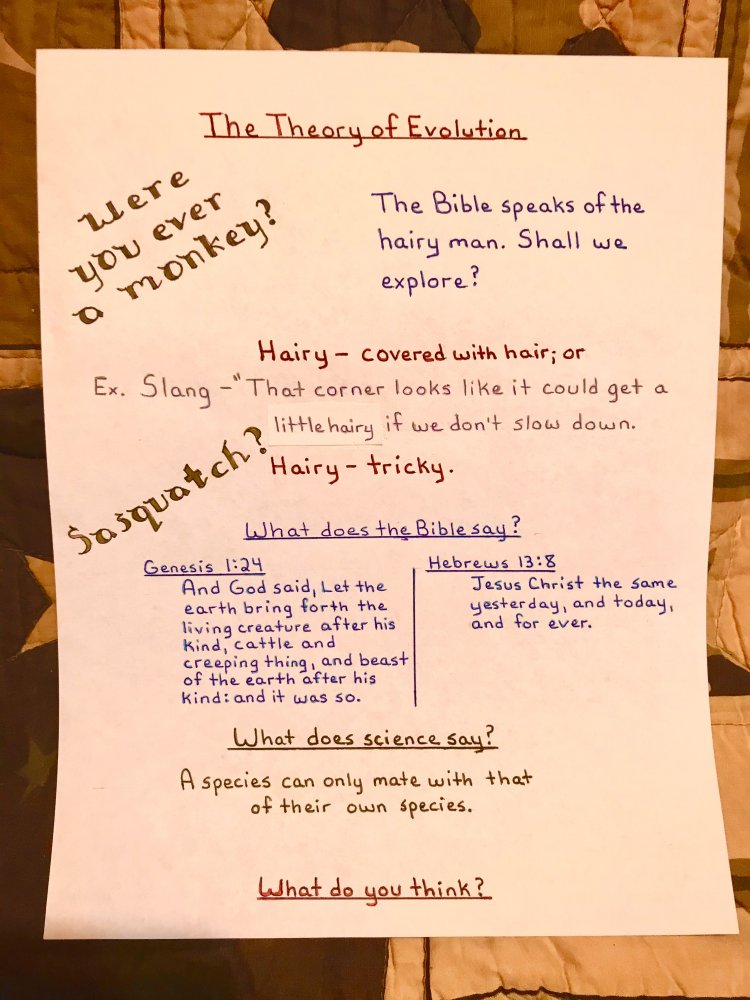 The Theory of Evolution
Were
you ever
a monkey?
The Bible speaks of the
hairy man. Shall we
explore?
Hairy – covered with hair; or
Ex. Slang – "That corner looks like it could get a
little hairy if we don't slow down.
Hairy – tricky.
Sasquatch?
What does the Bible say?
Genesis 1:24
And God said, Let the
earth bring forth the
living creature after his
kind, cattle and
creeping thing, and beast
of the earth after his
kind: and it was so.
Hebrews 13:8
Jesus Christ the same
yesterday, and today,
and for ever.
What does science say?
A species can only mate with that
of their own species.
What do you think?